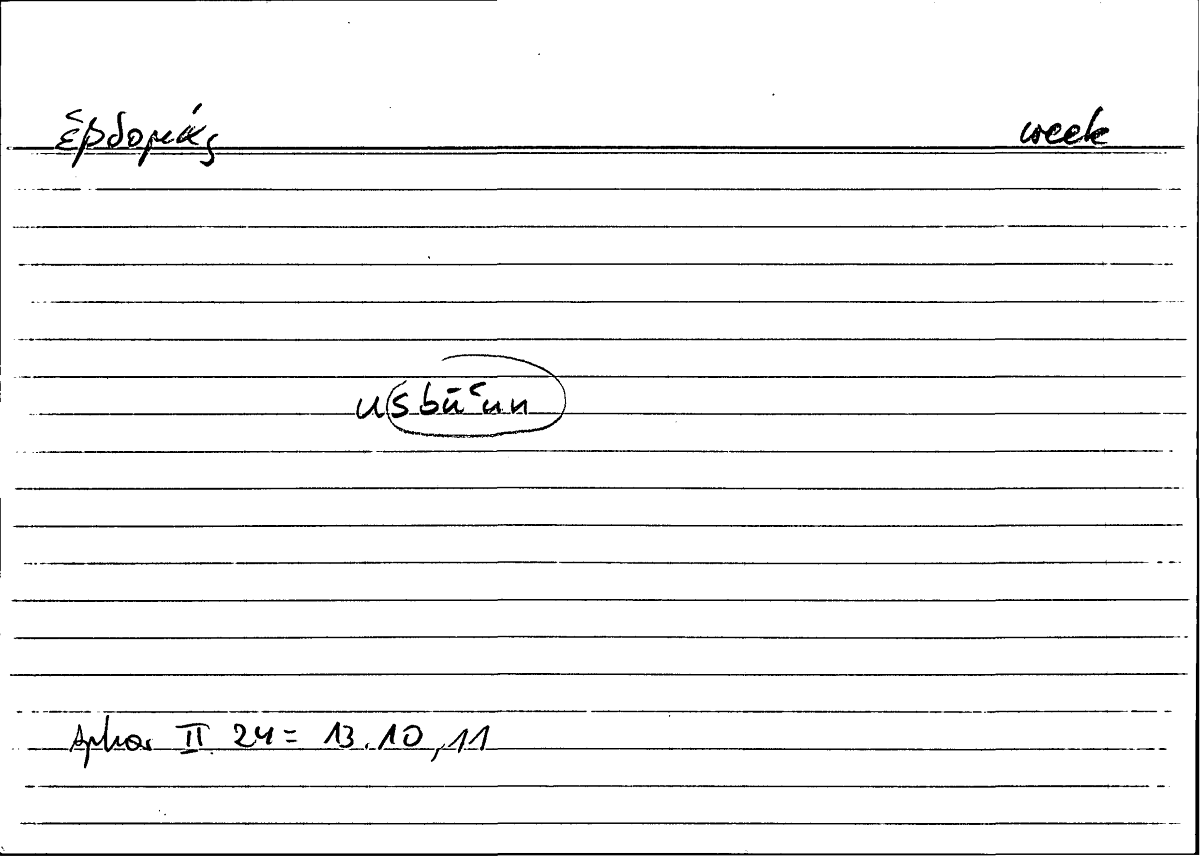 ἑβδομάς week
usbūʿun
Aphor II 24 = 13.10,11